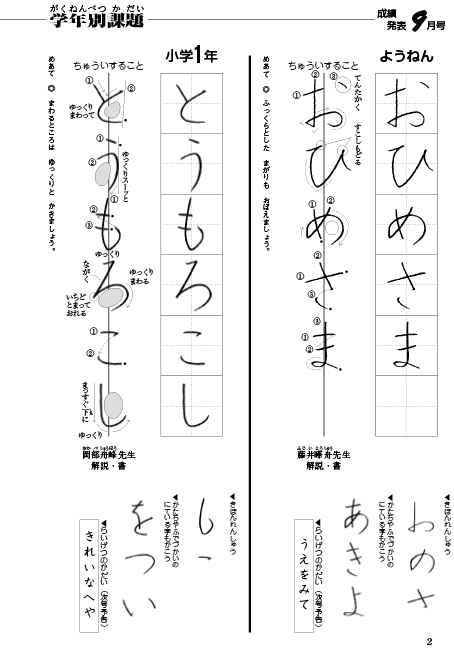 がくねんべつ か だい
学年別課題
成績
発表 9月号
ようねん
おひめさま
ちゅういすること
てんたかく
すこしもどる
①
②
③
おひめさま
めあて ◎ ふっくらとした まがりも おぼえましょう。
ふじ い とうしゅう
藤井峰舟先生
解説・書
◀きほんれんしゅう
おのさ
◀かたちやふでづかいの
にている字もかこう
あきよ
◀らいげつのかだい(次号予告)
うえをみて
小学1年
とうもろこし
ちゅういすること
①
②
ゆっくり
まわって
ゆっくりスーッと
ゆっくり
ながく
ゆっくり
まわる
いちど
とまって
おれる
まっすぐ下に
ゆっくり
とうもろこし
めあて ◎ まわるところは ゆっくりと かきましょう。
おか べ しゅうほう
岡部舟峰先生
解説・書
◀きほんれんしゅう
◀かたちやふでづかいの
にている字もかこう
をつい
◀らいげつのかだい(次号予告)
きれいなへや
2